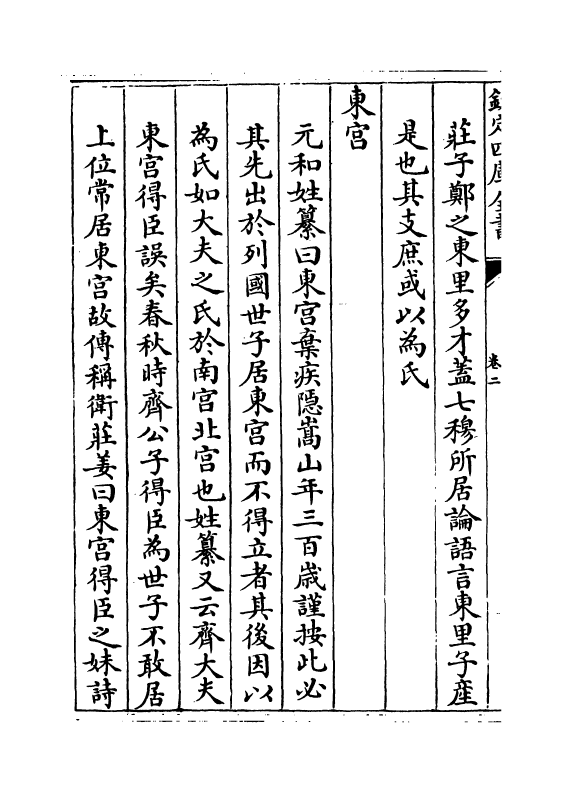 欽定四庫全書
卷二
莊子鄭之東里多才蓋七穆所居論語言東里子產
是也其支庶或以為氏
東宫
元和姓纂曰東宫棄疾隠嵩山年三百歳謹按此必
其先出於列國世子居東宫而不得立者其後因以
為氏如大夫之氏於南宫北宫也姓纂又云齊大夫
東宫得臣誤矣春秋時齊公子得臣為世子不敢居
上位常居東宫故傳稱衛莊姜曰東宫得臣之妹詩